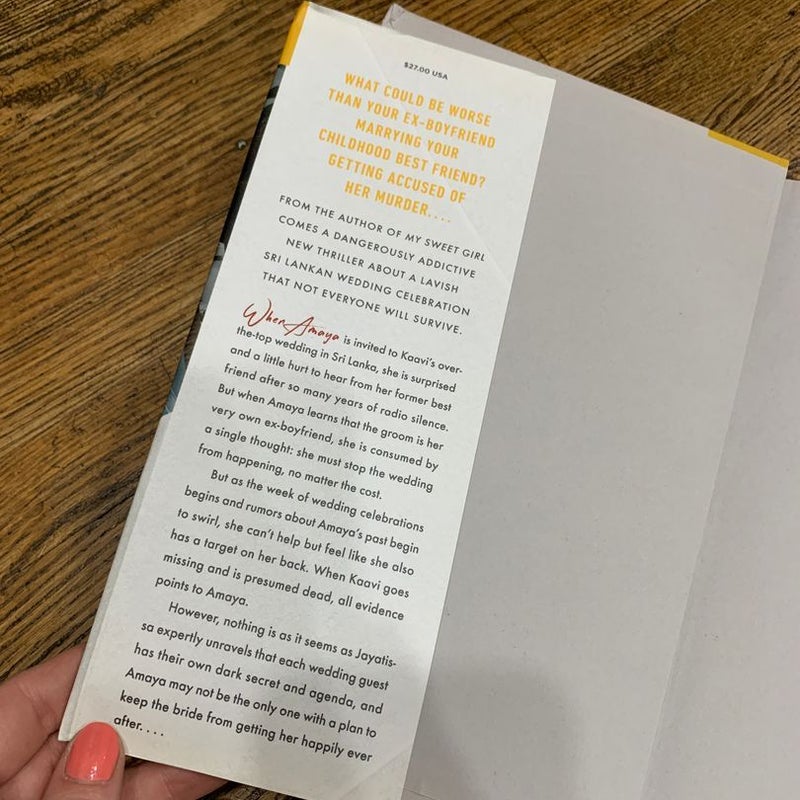 $27.00 USA
WHAT COULD BE WORSE
THAN YOUR EX-BOYFRIEND
MARRYING YOUR
CHILDHOOD BEST FRIEND?
GETTING ACCUSED OF
HER MURDER....
FROM THE AUTHOR OF MY SWEET GIRL
COMES A DANGEROUSLY ADDICTIVE
NEW THRILLER ABOUT A LAVISH
SRI LANKAN WEDDING CELEBRATION
THAT NOT EVERYONE WILL SURVIVE.
When Amaya is invited to Kaavi's over-
the-top wedding in Sri Lanka, she is surprised
and a little hurt to hear from her former best
friend after so many years of radio silence.
But when Amaya learns that the groom is her
very own ex-boyfriend, she is consumed by
a single thought: she must stop the wedding
from happening, no matter the cost.
But as the week of wedding celebrations
begins and rumors about Amaya's past begin
to swirl, she can't help but feel like she also
has a target on her back. When Kaavi goes
missing and is presumed dead, all evidence
points to Amaya.
However, nothing is as it seems as Jayatis-
sa expertly unravels that each wedding guest
has their own dark secret and agenda, and
Amaya may not be the only one with a plan to
keep the bride from getting her happily ever
after....